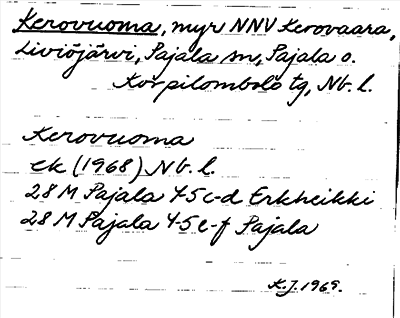 Kerovuoma, myr NNV Kerovaara,
Liviöjärvi, Pajala sn, Pajala o.
Korpilombolo tg, Nb. l.
Kerovuoma
ek (1968) Nb. l.
28 M Pajala 4-5 c-d Erkheikki
28 M Pajala 4-5 e-f Pajala
K.J. 1969.